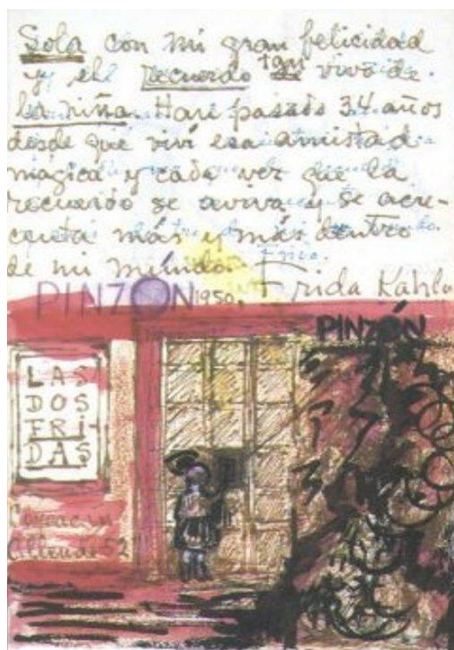 Sola con mi gran felicidad
y el recuerdo tan vivo de
la niña. Han pasado 34 años
desde que viví esa amistad
magica y cada vez que la
recuerdo se aviva y se acre-
centa más y más dentro
de mi mundo.
PINZÓN 1950. Frida Kahlo
PINZÓN
LAS
DOS
FRI-
DAS
Coyoacan
Allende 52